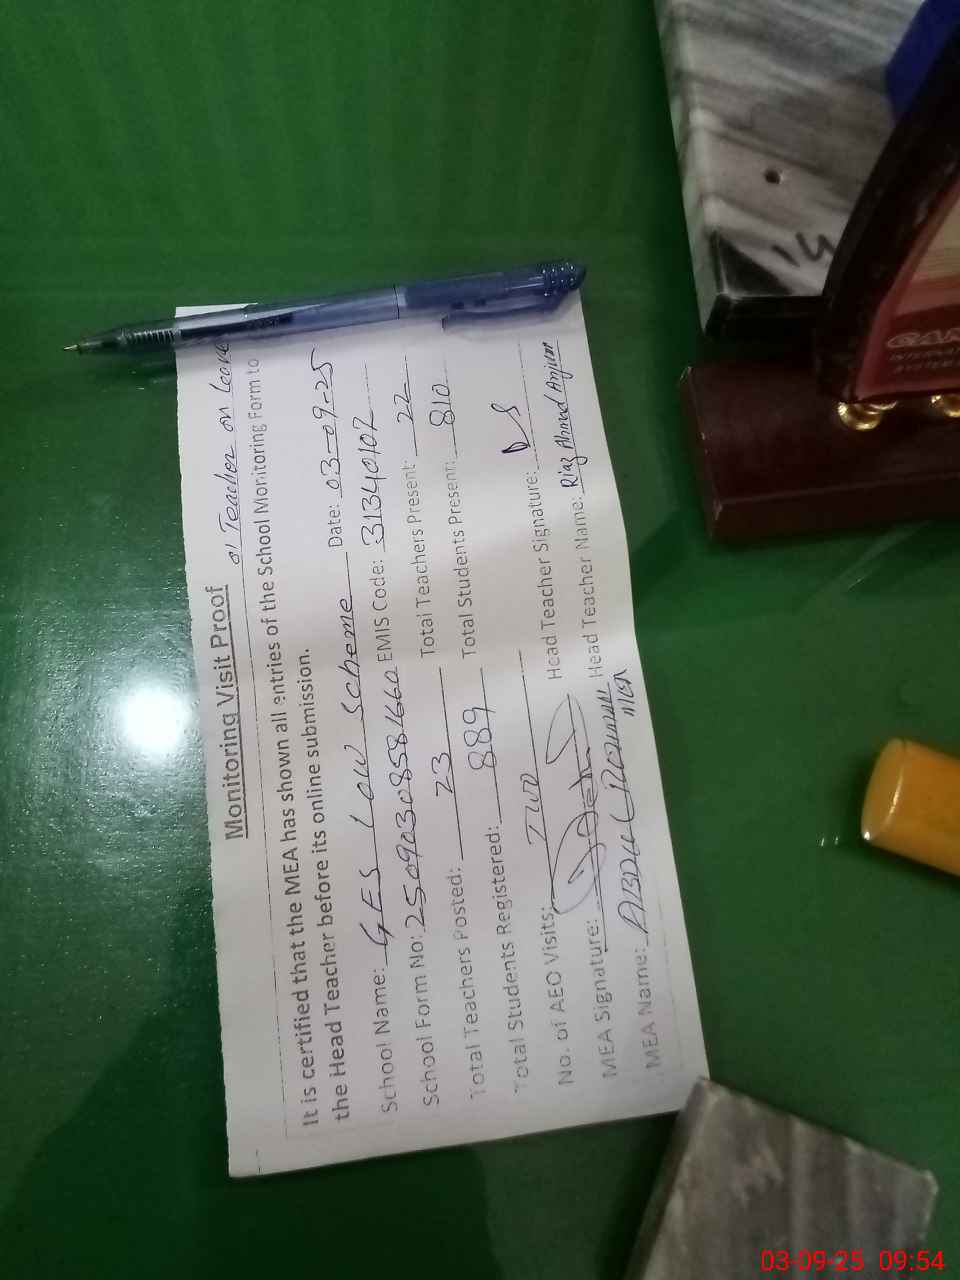 01 Teacher on Leave
Monitoring Visit Proof
It is certified that the MEA has shown all entries of the School Monitoring Form to
the Head Teacher before its online submission.
School Name: GES Low Scheme Date: 03-09-25
School Form No: EMIS Code: 31340102
Total Teachers Posted: 23 Total Teachers Present: 22
Total Students Registered: 889 Total Students Present: 810
No. of AEO Visits: Two
MEA Signature: Head Teacher Signature:
MEA Name: ABDUL REHMAN Head Teacher Name: Riaz Ahmad Anjum
MEA
14
INTERNA
SYSTEM
03-09-25 09:54